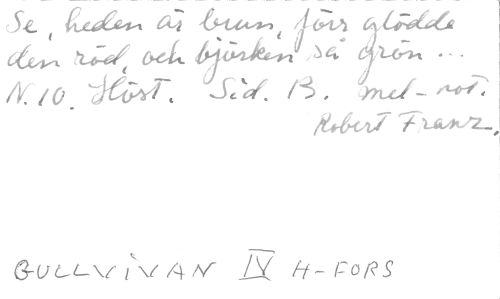 Se, heden är brun, förr glödde
den röd, och björken så grön ...
N. 10. Höst. Sid. 13. mel-not.
Robert Franz.
GULLVIVAN IV H-FORS